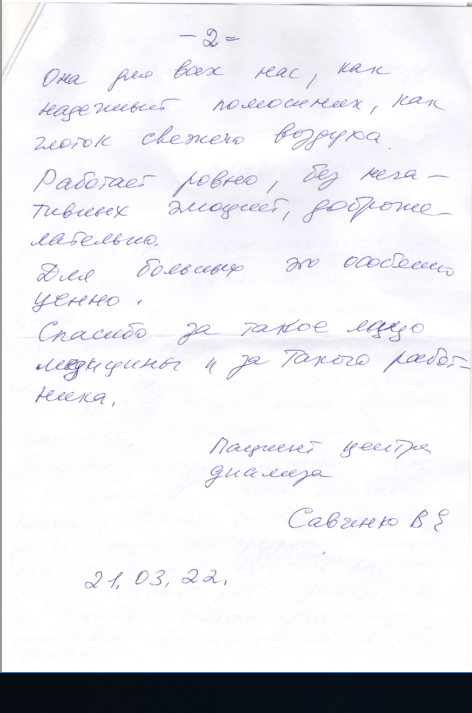 – 2 =
Она для всех нас, как
надежный помощник, как
глоток свежего воздуха.
Работает ровно, без нега-
тивных эмоций, доброже-
лательно.
Для больных это особенно
ценно.
Спасибо за такое лицо
медицины и за такого работ-
ника.
Пациент центра
диализа
Савченко В Е
21.03.22.